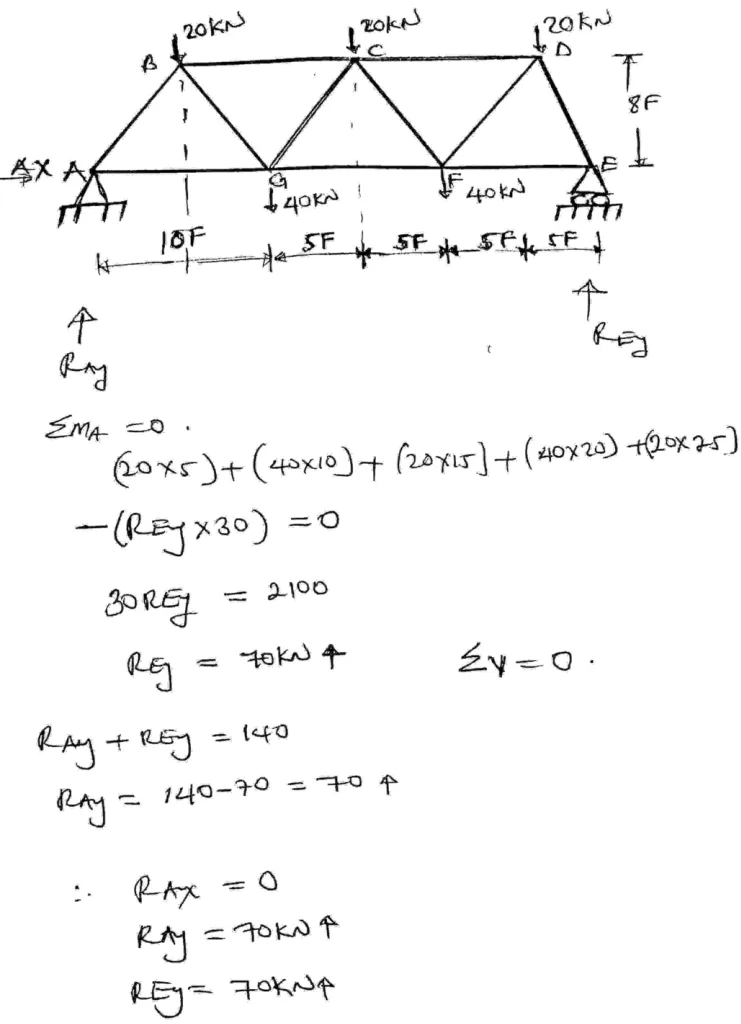 20KN 20KN 20KN
B C D
8F
AX A G F E
40KN 40KN
10F 5F 5F 5F 5F
RAy REy
ΣMA =0 .
(20x5)+(40x10)+(20x15)+(40x20)+(20x25)
-(REy x30) =0
30REy = 2100
REy = 70KN ↑ ΣV=0 .
RAy + REy = 140
RAy = 140-70 = 70 ↑
∴ RAx = 0
RAy = 70KN ↑
REy = 70KN↑